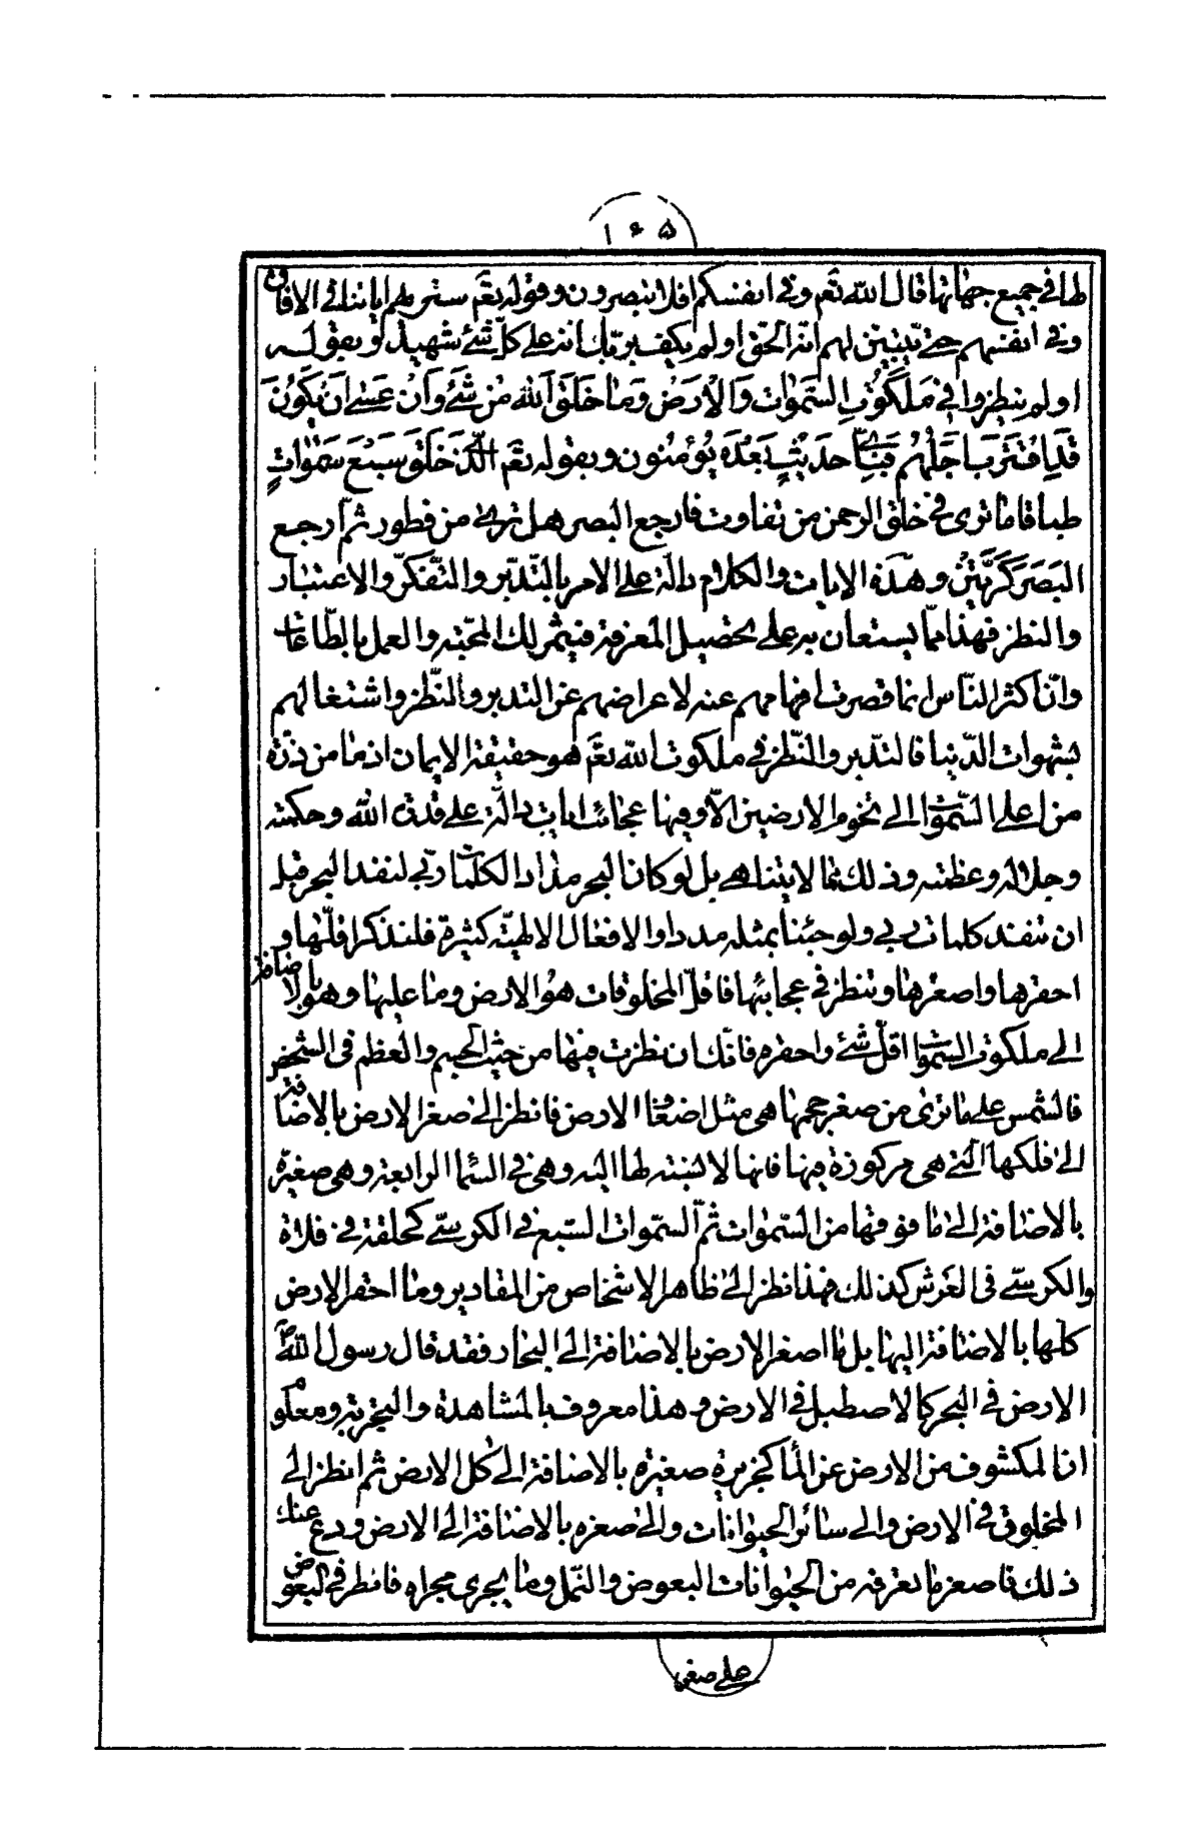 ۱۶۵
لها في جميع جهاتها قال الله تعم وفي انفسكم افلا تبصرون وقوله تعم سنريهم اياتنا في الافاق
وفي انفسهم حتى يتبين لهم انه الحق اولم يكف بربك انه على كل شئ شهيد وبقوله
اولم ينظروا في مَلَكُوتِ السَّمٰوات وَالْاَرَض وَمٰا خَلَقَ اللّٰه مِن شَئ وَاَنْ عَسىٰ اَن يَكُونَ
قَدِ اقْتَرَبَ اَجَلُهُم فَبِاَيِّ حَديثٍ بَعْدَهُ يُؤمِنُون وبقوله تعم الَّذي خَلَقَ سَبْعَ سَمٰوٰاتٍ
طباقا ما ترى في خلق الرحمن من تفاوت فارجع البصر هل ترى من فطور ثمّ ارجع
البَصَرَ كَرَّتَيْنِ وهذه الايات والكلام دالّة على الامر بالتدبّر والتّفكّر والاعتبار
والنظر فهذا ممّا يستعان به على تحصيل المعرفة فيثمر لك المحبّة والعمل بالطّاعات
وانّ اكثر النّاس انما قصرت افهامهم عنه لاعراضهم عن التدبر والنّظر واشتغالهم
بشهوات الدّنيا فالتدبر والنّظر في ملكوت الله تعم هو حقيقة الايمان اذ ما من ذرّة
من اعلى السّموات الى تخوم الارضين الّا وفيها عجائب ايات دالّة على قدرة الله وحكمته
وجلاله وعظمته وذلك مما لا يتناهى بل لو كان البحر مدادا لكلمات ربّي لنفد البحر قبل
ان تنفد كلمات ربي ولو جئنا بمثله مددا والافعال الالهيّة كثيرة فلنذكر اقلّها و
احقرها واصغرها وننظر في عجائبها فاقلّ المخلوقات هو الارض وما عليها وهو بالاضافة
الى ملكوت السّموات اقلّ شئ واحقره فانّك ان نظرت فيها من حيث الجسم والعظم في الشخص
فالشمس على ما ترى من صغر حجمها هي مثل اضعاف الارض فانظر الى صغر الارض بالاضافة
الى فلكها الّتي هي مركوزة فيها فانها لا نسبة لها اليه وهي في السّماء الرابعة وهي صغيرة
بالاضافة الى ما فوقها من السّموات ثمّ السّموات السّبع في الكرسيّ كحلقة في فلاة
والكرسيّ في العَرش كذلك فهذا نظر الى ظاهر الاشخاص من المقادير وما احقر الارض
كلها بالاضافة اليها بل ما اصغر الارض بالاضافة الى البحار فقد قال رسول اللهؐ
الارض في البحر كالاصطبل في الارض وهذا معروف بالمشاهدة والتجربة ومعلوم
ان المكشوف من الارض عن الماء كجزيرة صغيرة بالاضافة الى كل الارض ثم انظر الى
المخلوق في الارض والى سائر الحيوانات والى صغره بالاضافة الى الارض ودع عنك
ذلك فاصغر ما نعرفه من الحيوانات البعوض والنّمل وما يجري مجراه فانظر في البعوض
على صغر